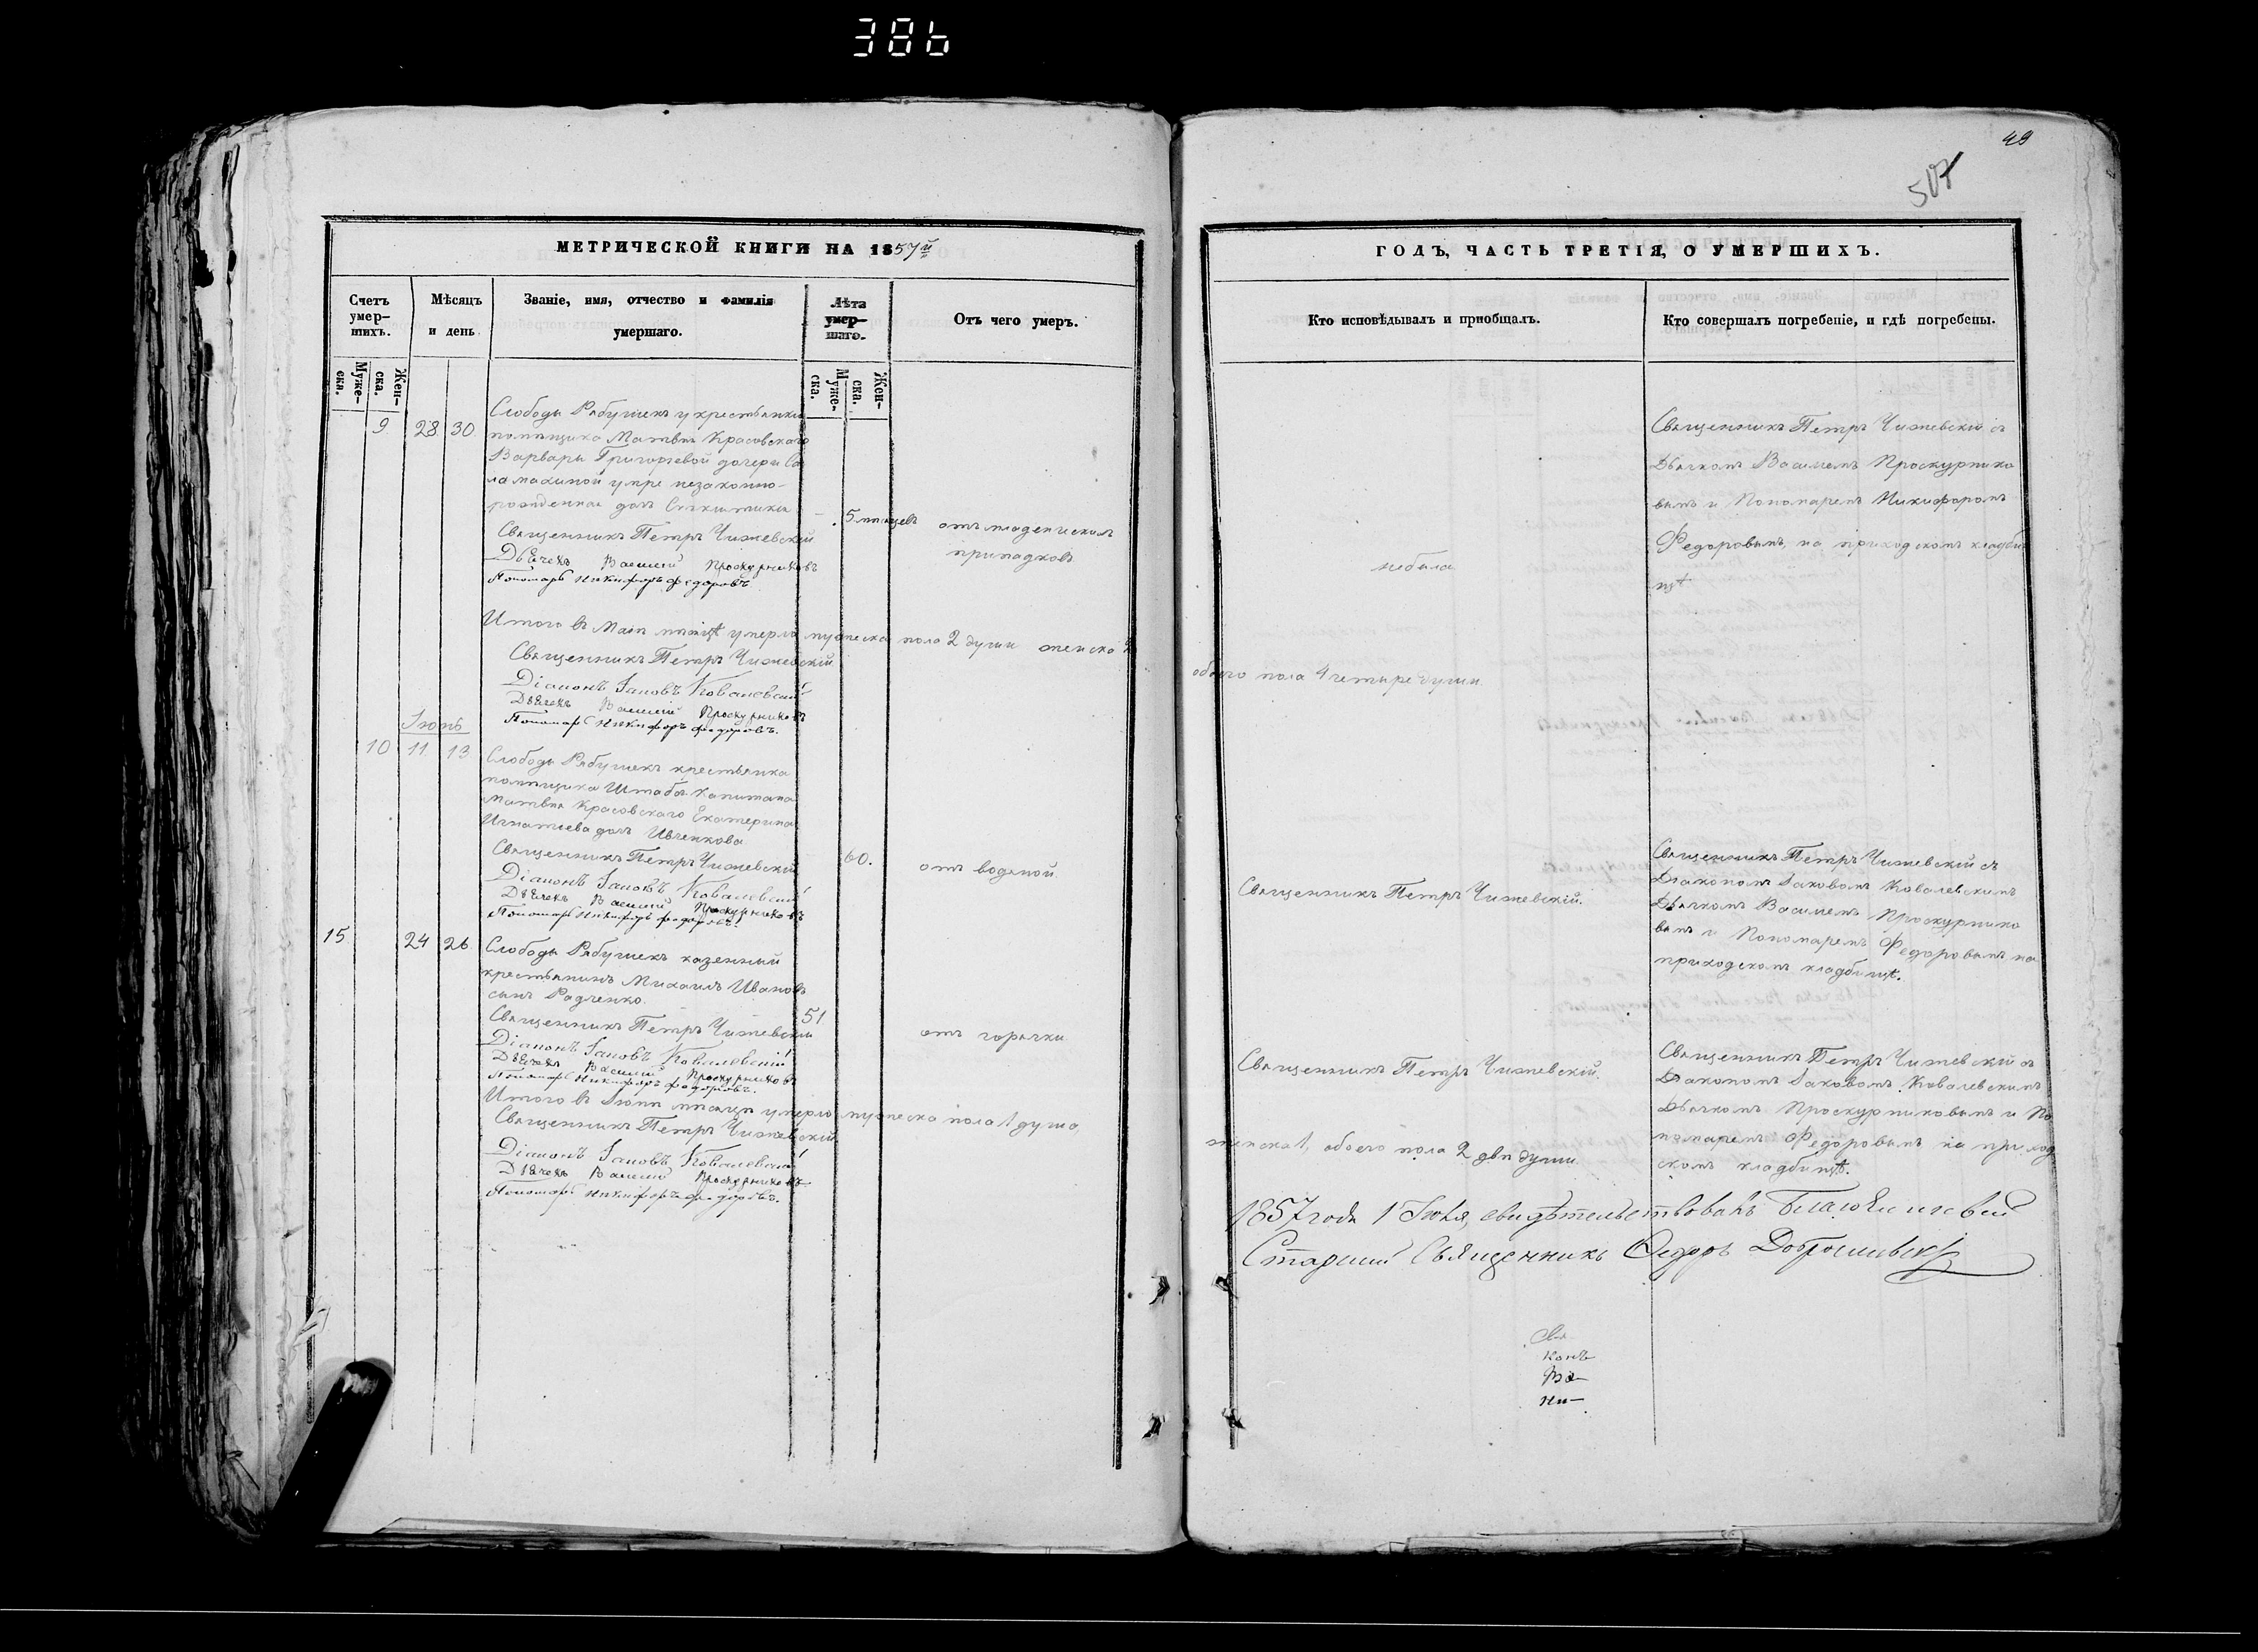 386
49
507
МЕТРИЧЕСКОЙ КНИГИ НА 1857й
Счетъ умер-шихъ.
Мѣсяцъ и день.
Званіе, имя, отчество и фамилія умершаго.
Лѣта умер-шаго.
Отъ чего умеръ.
Муже-ска.
Жен-ска.
Муже-ска.
Жен-ска.
9 28 30
Слободы Рябушекъ у крестьянки
помѣщика Матвѣя Красовскаго
Варвары Григорьевой дочери
умре незаконно-
рожденная дочь
5 мѣсяцевъ
отъ младенческихъ
припадковъ
Священникъ Петръ Чижевскій
Дьячекъ Василій Проскурниковъ
Пономарь Никифоръ Федоровъ.
Итого въ Маіи мѣсяцѣ умерло мужеска пола 2 души женска 2
Священникъ Петръ Чижевскій
Діаконъ Іаковъ Ковалевскій
Дьячекъ Василій Проскурниковъ
Пономарь Никифоръ Федоровъ.
Іюнь
10 11 13
Слободы Рябушекъ крестьянка
помѣщика Штабсъ-Капитана
Матвѣя Красовскаго Екатерина
Игнатіева дочь Ивченкова
60.
отъ водяной.
Священникъ Петръ Чижевскій
Діаконъ Іаковъ Ковалевскій
Дьячекъ Василій Проскурниковъ
Пономарь Никифоръ Федоровъ.
15 24 26
Слободы Рябушекъ казенный
крестьянинъ Михаилъ Ивановъ
сынъ Радченко.
51
отъ горячки
Священникъ Петръ Чижевскій
Діаконъ Іаковъ Ковалевскій
Дьячекъ Василій Проскурниковъ
Пономарь Никифоръ Федоровъ.
Итого въ Іюнѣ мѣсяцѣ умерло мужеска пола 1 душа,
Священникъ Петръ Чижевскій
Діаконъ Іаковъ Ковалевскій
Дьячекъ Василій Проскурниковъ
Пономарь Никифоръ Федоровъ.
ГОДЪ, ЧАСТЬ ТРЕТІЯ, О УМЕРШИХЪ.
Кто исповѣдывалъ и пріобщалъ.
Кто совершалъ погребеніе, и гдѣ погребены.
небыла
Священникъ Петръ Чижевскій съ
Дьячкомъ Василіемъ Проскурнико
вымъ и Пономаремъ Никифоромъ
Федоровымъ, на приходскомъ кладби
щѣ
обоего пола 4 четыре души.
Священникъ Петръ Чижевскій.
Священникъ Петръ Чижевскій съ
Діакономъ Іаковомъ Ковалевскимъ
Дьячкомъ Василіемъ Проскурнико
вымъ и Пономаремъ Федоровымъ на
приходскомъ кладбищѣ.
Священникъ Петръ Чижевскій.
Священникъ Петръ Чижевскій съ
Діакономъ Іаковомъ Ковалевскимъ
Дьячкомъ Проскурниковымъ и По
номаремъ Федоровымъ на приход
скомъ кладбищѣ.
женска 1, обоего пола 2 двѣ души
1857 года 1 Іюля, свидѣтельствовалъ
Старший Священникъ Федоръ
конъ
Ва-
Ни-